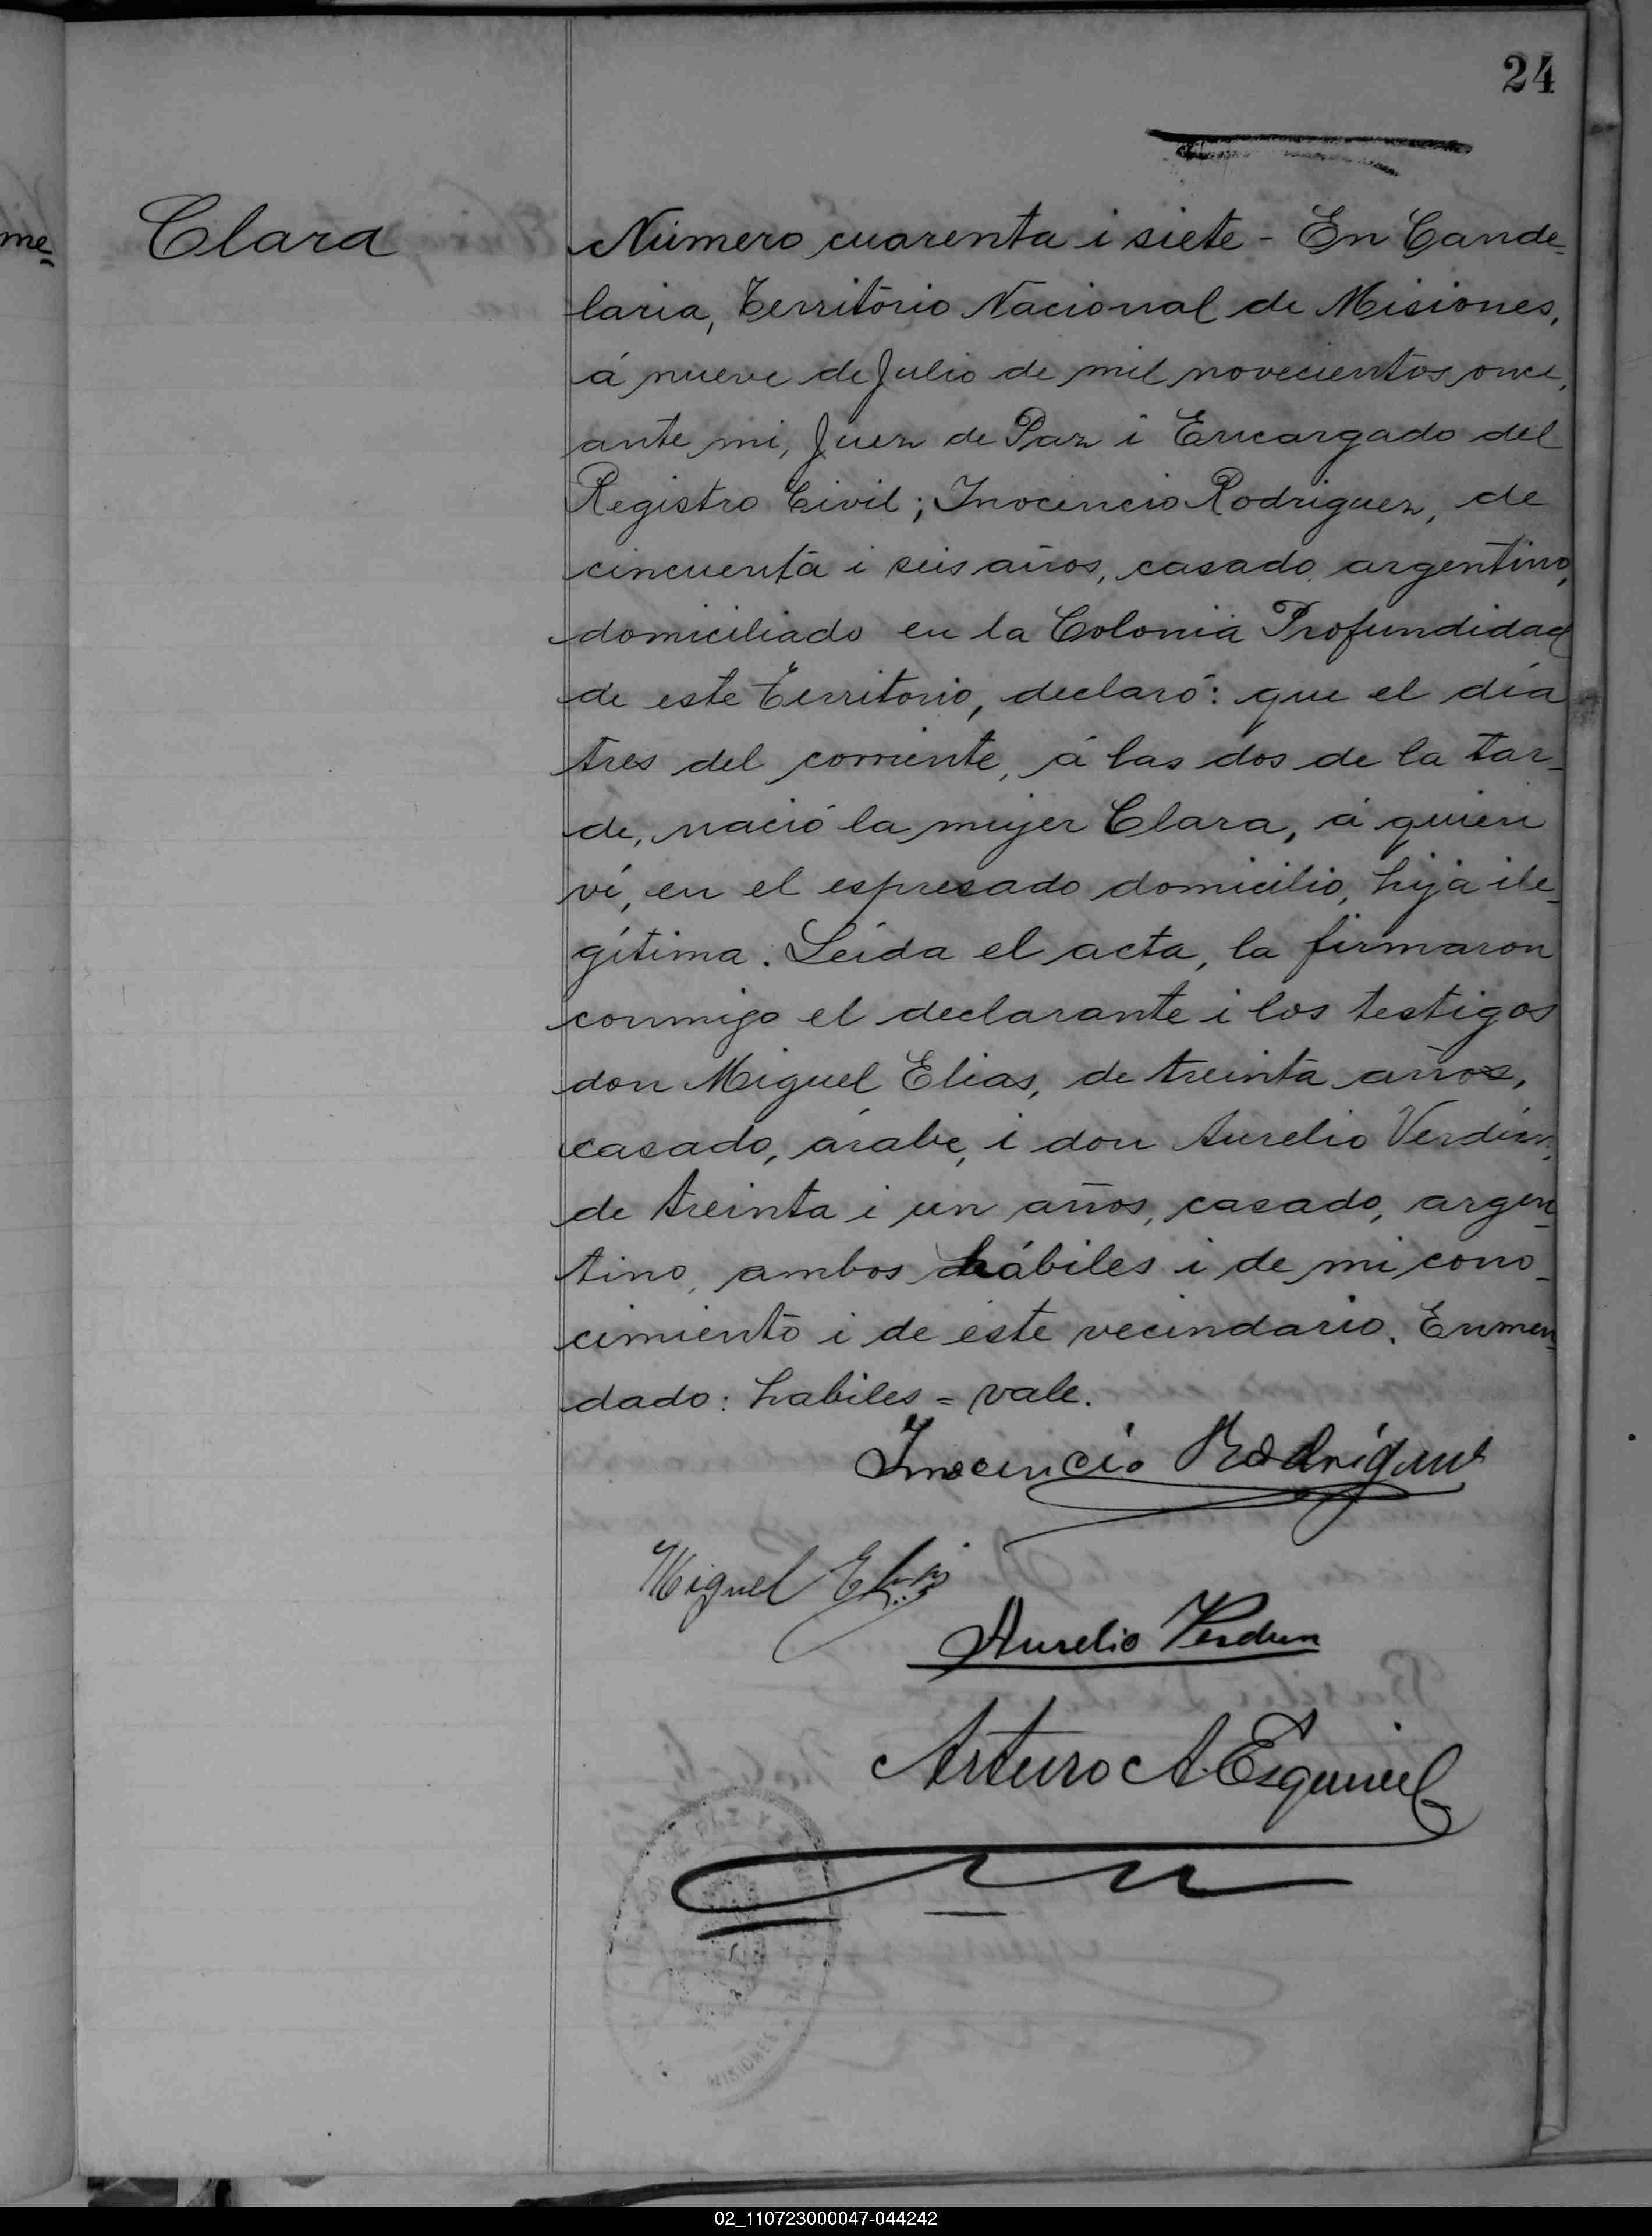 24
me=
Clara
Número cuarenta i siete - En Cande=
laria, Territorio Nacional de Misiones,
á nueve de Julio de mil novecientos once,
ante mi, Juez de Paz i Encargado del
Registro Civil; Inocencio Rodriguez, de
cincuenta i seis años, casado, argentino,
domiciliado en la Colonia Profundidad
de este Territorio, declaró: que el día
tres del corriente, á las dos de la tar_
de, nació la mujer Clara, á quien
ví, en el espresado domicilio, hija ile_
gítima. Leída el acta, la firmaron
conmigo el declarante i los testigos
don Miguel Elias, de treinta años,
casado, árabe, i don Aurelio Verdún,
de treinta i un años, casado, argen_
tino, ambos hábiles i de mi cono_
cimiento i de éste vecindario. Enmen_
dado: habiles = vale.
Inocencio Rodriguez
Miguel Elias
Aurelio Verdun
Arturo A. Esquivel
DE PAZ Y
MISIONES
02_110723000047-044242